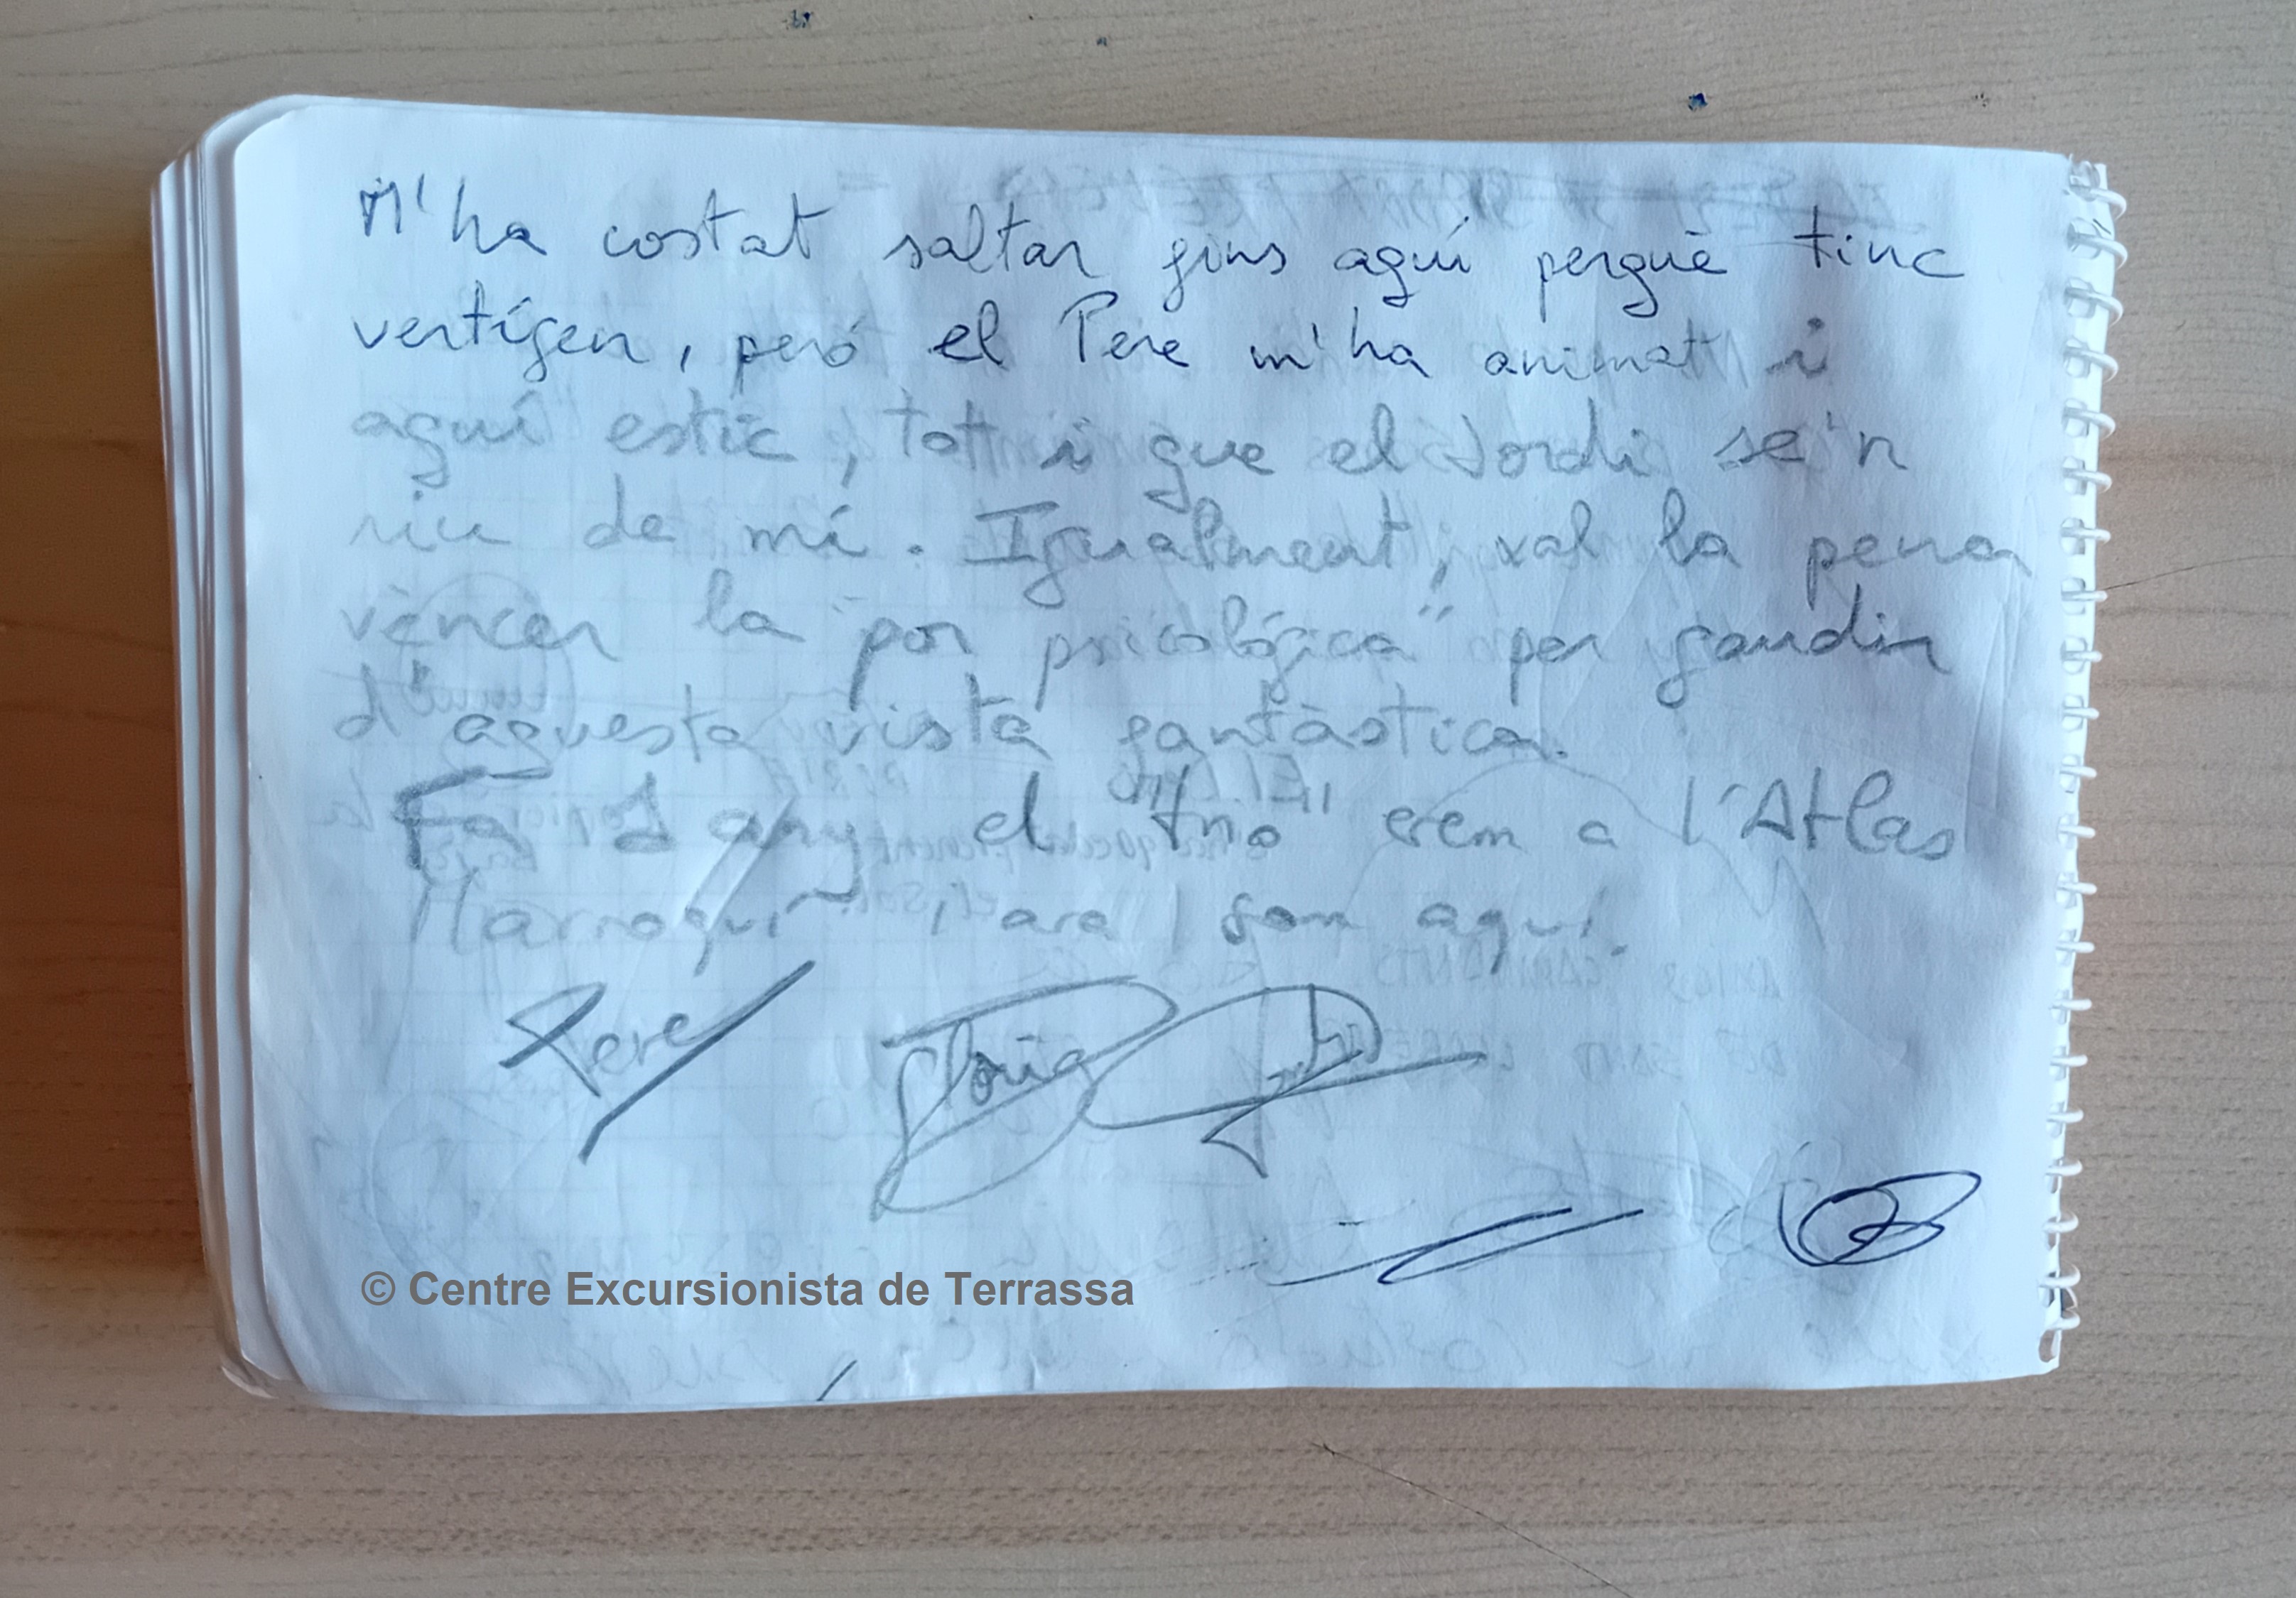 M'ha costat saltar fins aquí perquè tinc
vertígen, peró el Pere m'ha animat i
aquí estic, tot i que el Jordi se'n
riu de mí. Igualment, val la pena
vèncer la "por psicológica" per gaudir
d'aquesta vista fantàstica.
Fa 1 any el "trio" erem a l'Atlas
Marroquí i ara som aquí.
Pere Glòria
© Centre Excursionista de Terrassa